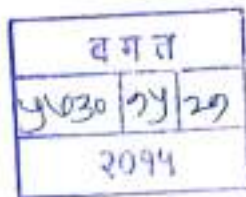 वगत
५७३० १५ २१
२०१५